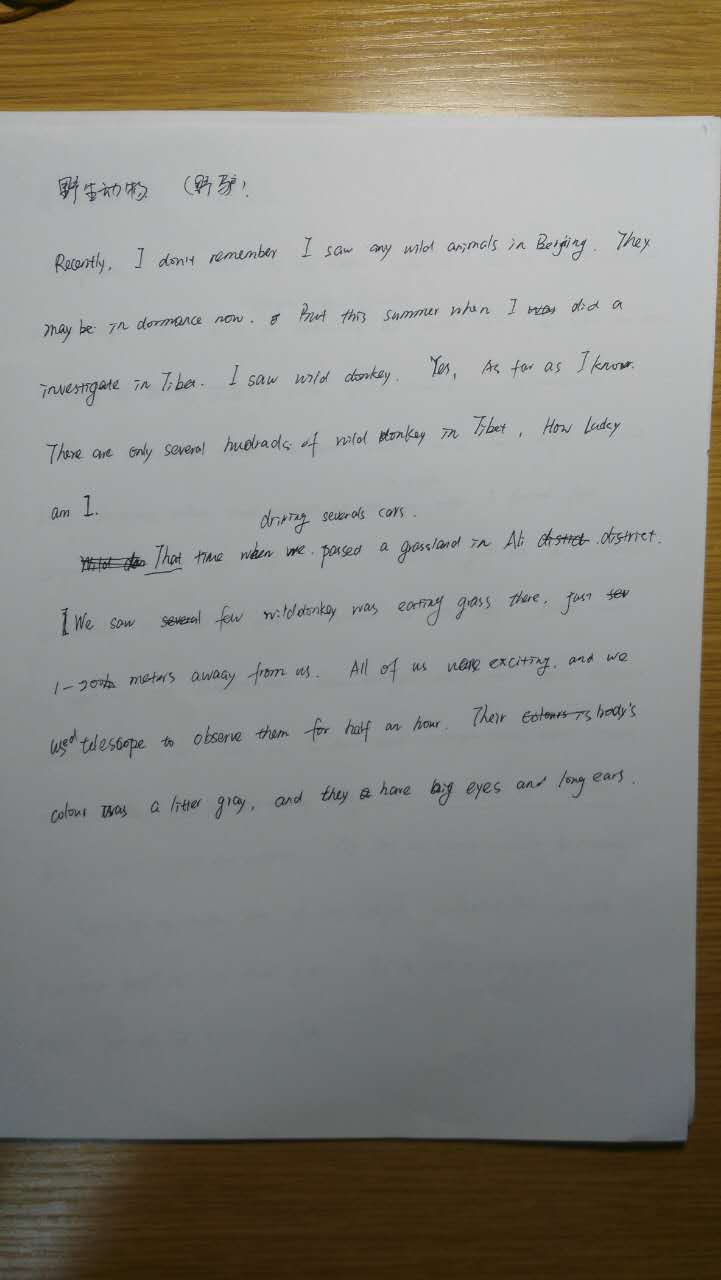 野生动物 (野驴).
Recently, I don't remember I saw any wild animals in Beijing. They
may be in dormance now. But this summer when I was did a
investigate in Tibet. I saw wild donkey. Yes, As far as I know.
There are only several hudrads of wild donkey in Tibet, How lucky
am I.
driving severals cars.
That time when we passed a grassland in Ali distict district.
We saw several few wild donkey was earting grass there, just
meters awaay from us. All of us were exciting, and we
used telescope to observe them for half an hour. Their colours is body's
colour was a litter gray, and they have big eyes and long ears.